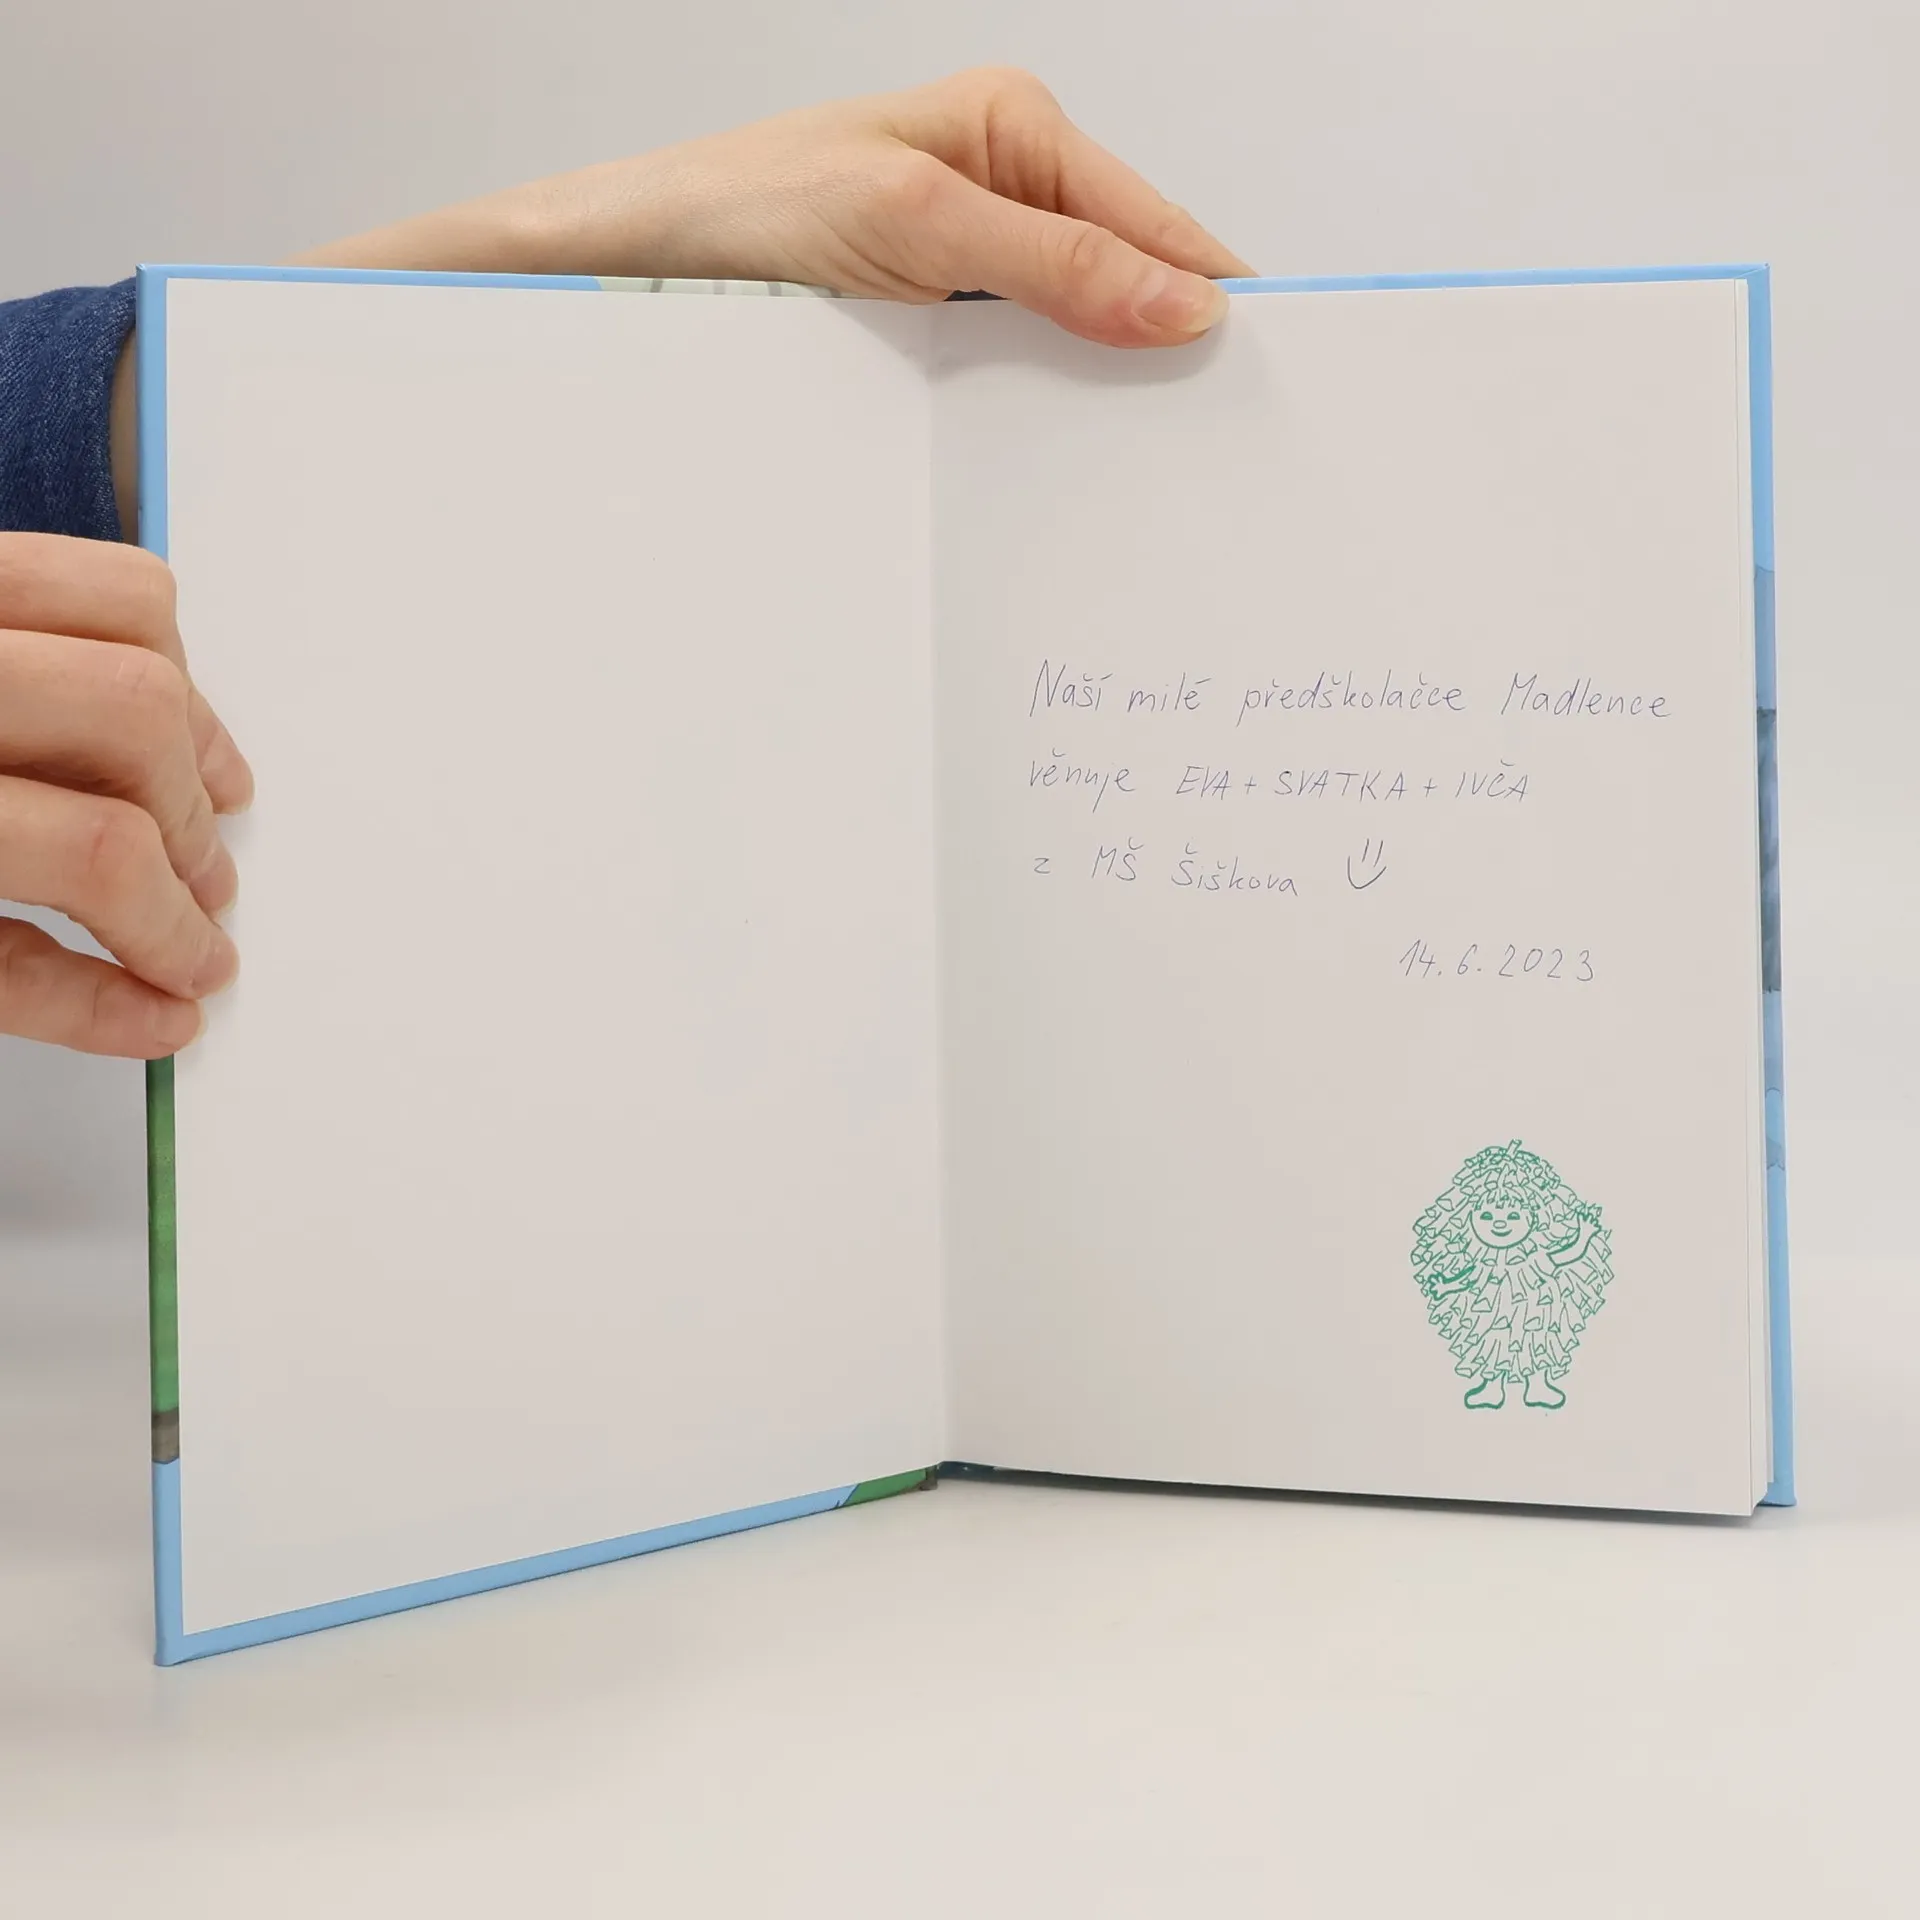 Naší milé předškolačce Madlence
věnuje EVA + SVATKA + IVČA
z MŠ Šiškova
14. 6. 2023